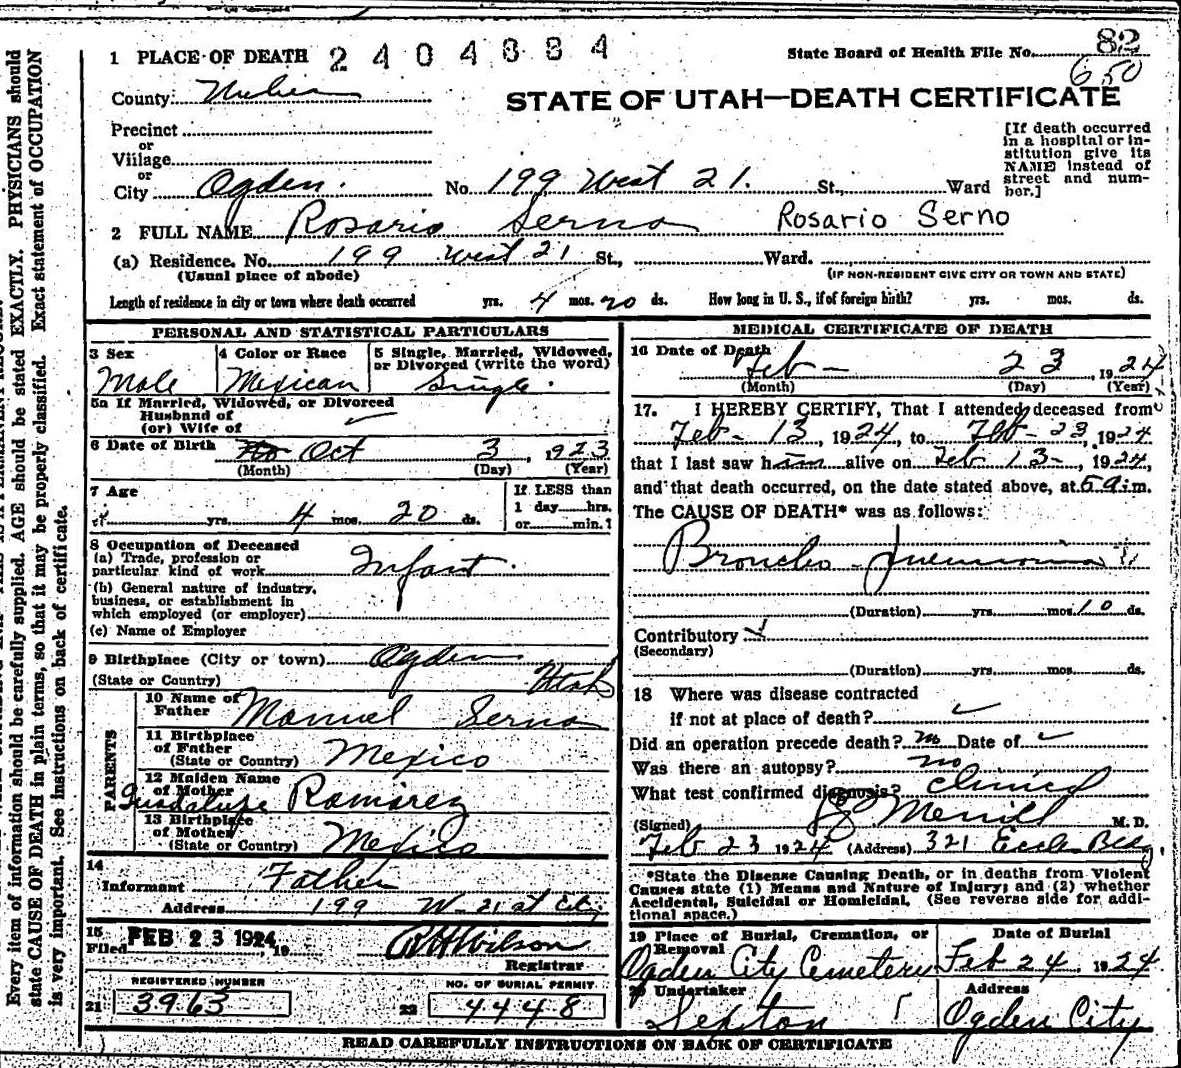 1 PLACE OF DEATH 2404884 State Board of Health File No. 82
650
County: Weber
STATE OF UTAH—DEATH CERTIFICATE
Precinct
or
Village
or
City Ogden. No. 199 West 21. St., Ward
[If death occurred in a hospital or institution give its NAME instead of street and number.]
2 FULL NAME Rosario Serno Rosario Serno
(a) Residence. No. 199 West 21 St., Ward.
(Usual place of abode) (IF NON-RESIDENT GIVE CITY OR TOWN AND STATE)
Length of residence in city or town where death occurred yrs. 4 mos. 20 ds. How long in U. S., if of foreign birth? yrs. mos. ds.
PERSONAL AND STATISTICAL PARTICULARS
3 Sex 4 Color or Race 5 Single, Married, Widowed, or Divorced (write the word)
Male Mexican Single.
5a If Married, Widowed, or Divorced
Husband of
(or) Wife of
6 Date of Birth Oct 3, 1923
(Month) (Day) (Year)
7 Age If LESS than
yrs. 4 mos. 20 ds. 1 day hrs.
or min.?
8 Occupation of Deceased
(a) Trade, profession or
particular kind of work Infant.
(b) General nature of industry,
business, or establishment in
which employed (or employer)
(c) Name of Employer
9 Birthplace (City or town) Ogden
(State or Country) Utah
PARENTS
10 Name of
Father Manuel Serno
11 Birthplace
of Father
(State or Country) Mexico
12 Maiden Name
of Mother
Guadalupe Ramirez
13 Birthplace
of Mother
(State or Country) Mexico
14
Informant Father
Address 199 W- 21 st City
15
Filed FEB 23 1924, 19 Wilson
Registrar
REGISTERED NUMBER NO. OF BURIAL PERMIT
21 3963 22 4448
MEDICAL CERTIFICATE OF DEATH
16 Date of Death
Feb- 23, 1924
(Month) (Day) (Year)
17. I HEREBY CERTIFY, That I attended deceased from
Feb- 13, 1924, to Feb- 23, 1924
that I last saw him alive on Feb 13-, 1924,
and that death occurred, on the date stated above, at 5 a.m.
The CAUSE OF DEATH* was as follows:
Broncho- pneumonia
(Duration) yrs. mos. 10 ds.
Contributory
(Secondary)
(Duration) yrs. mos. ds.
18 Where was disease contracted
if not at place of death?
Did an operation precede death? no Date of
Was there an autopsy? no
What test confirmed diagnosis? clinical
(Signed) Merrill M. D.
Feb 23 1924 (Address) 321 Eccles Bldg.
*State the Disease Causing Death, or in deaths from Violent
Causes state (1) Means and Nature of Injury; and (2) whether
Accidental, Suicidal or Homicidal. (See reverse side for addi-
tional space.)
19 Place of Burial, Cremation, or Removal Date of Burial
Ogden City Cemetery Feb 24, 1924
20 Undertaker Address
Sexton Ogden City
READ CAREFULLY INSTRUCTIONS ON BACK OF CERTIFICATE
Every item of information should be carefully supplied. AGE should be stated EXACTLY. PHYSICIANS should
state CAUSE OF DEATH in plain terms, so that it may be properly classified. Exact statement of OCCUPATION
is very important. See instructions on back of certificate.